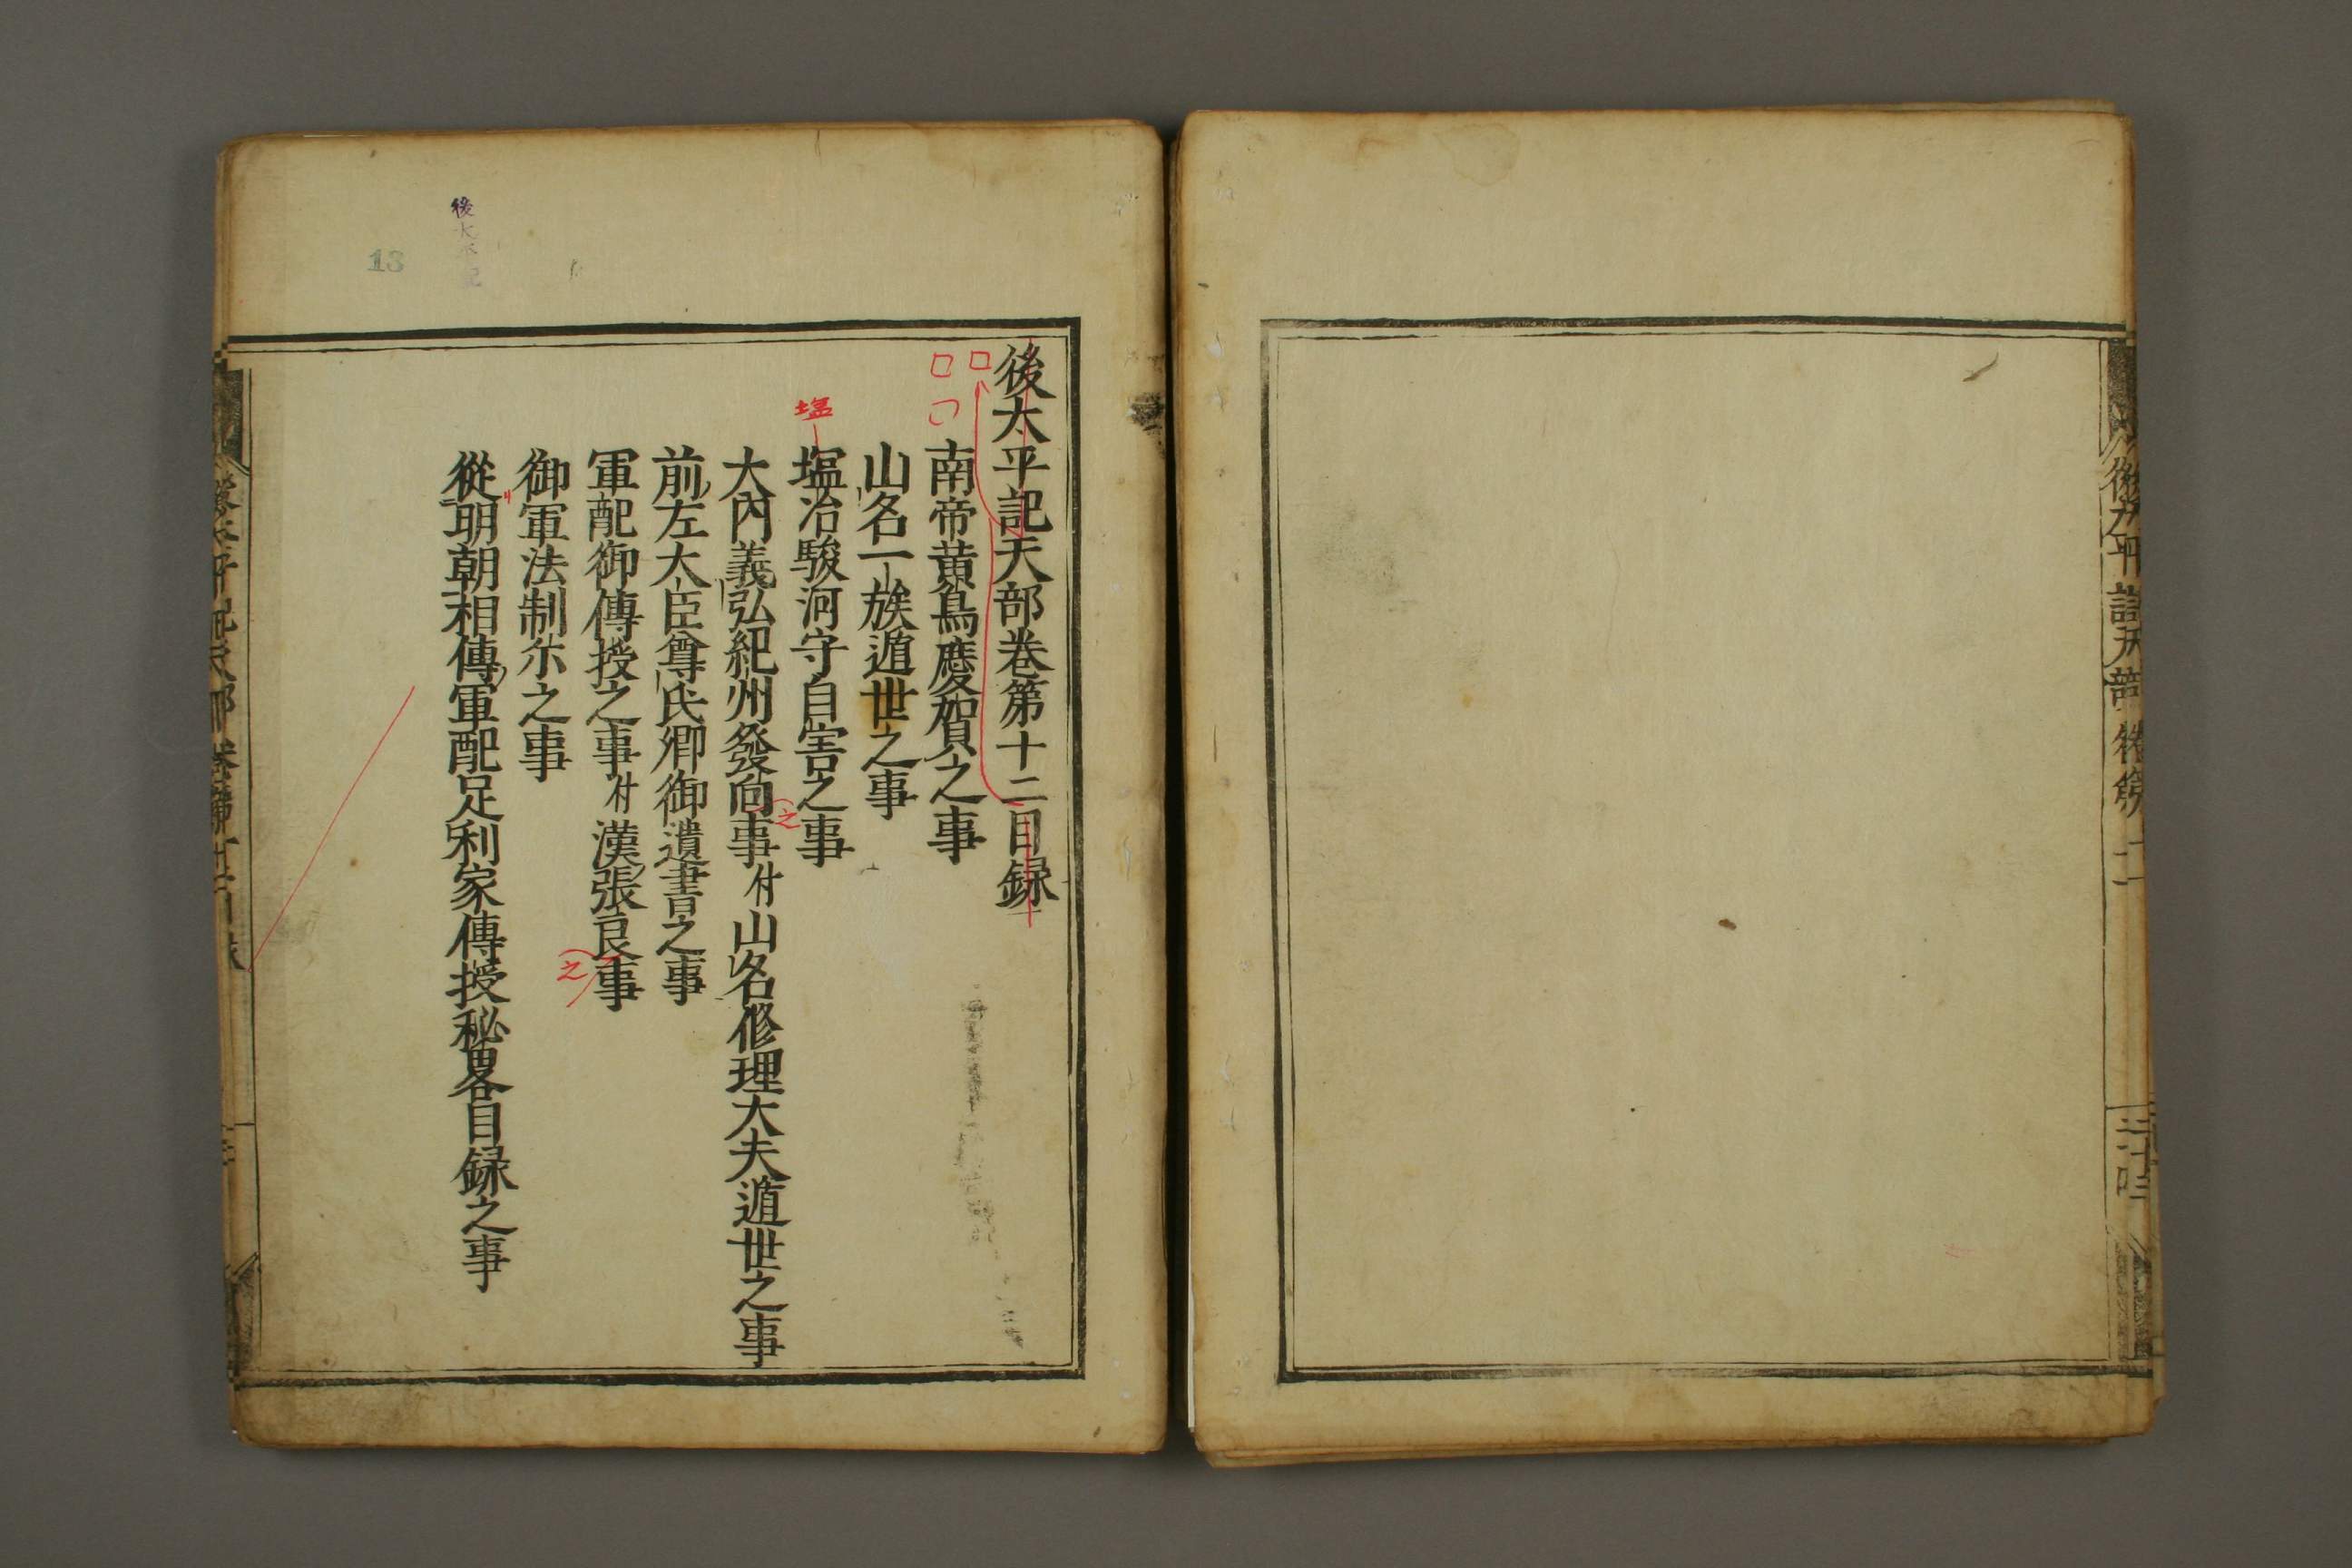 後太平記天部巻第十二目録
南帝黄鳥慶賀之事
山名一族遁世之事
塩
塩冶駿河守自害之事
大内義弘紀州發向事付山名修理大夫遁世之事
之
前左大臣尊氏卿御遺書之事
軍配御傳授之事付漢張良事
之
御軍法制尓之事
從明朝相傳軍配足利家傳授秘畧目録之事
後太平記
13